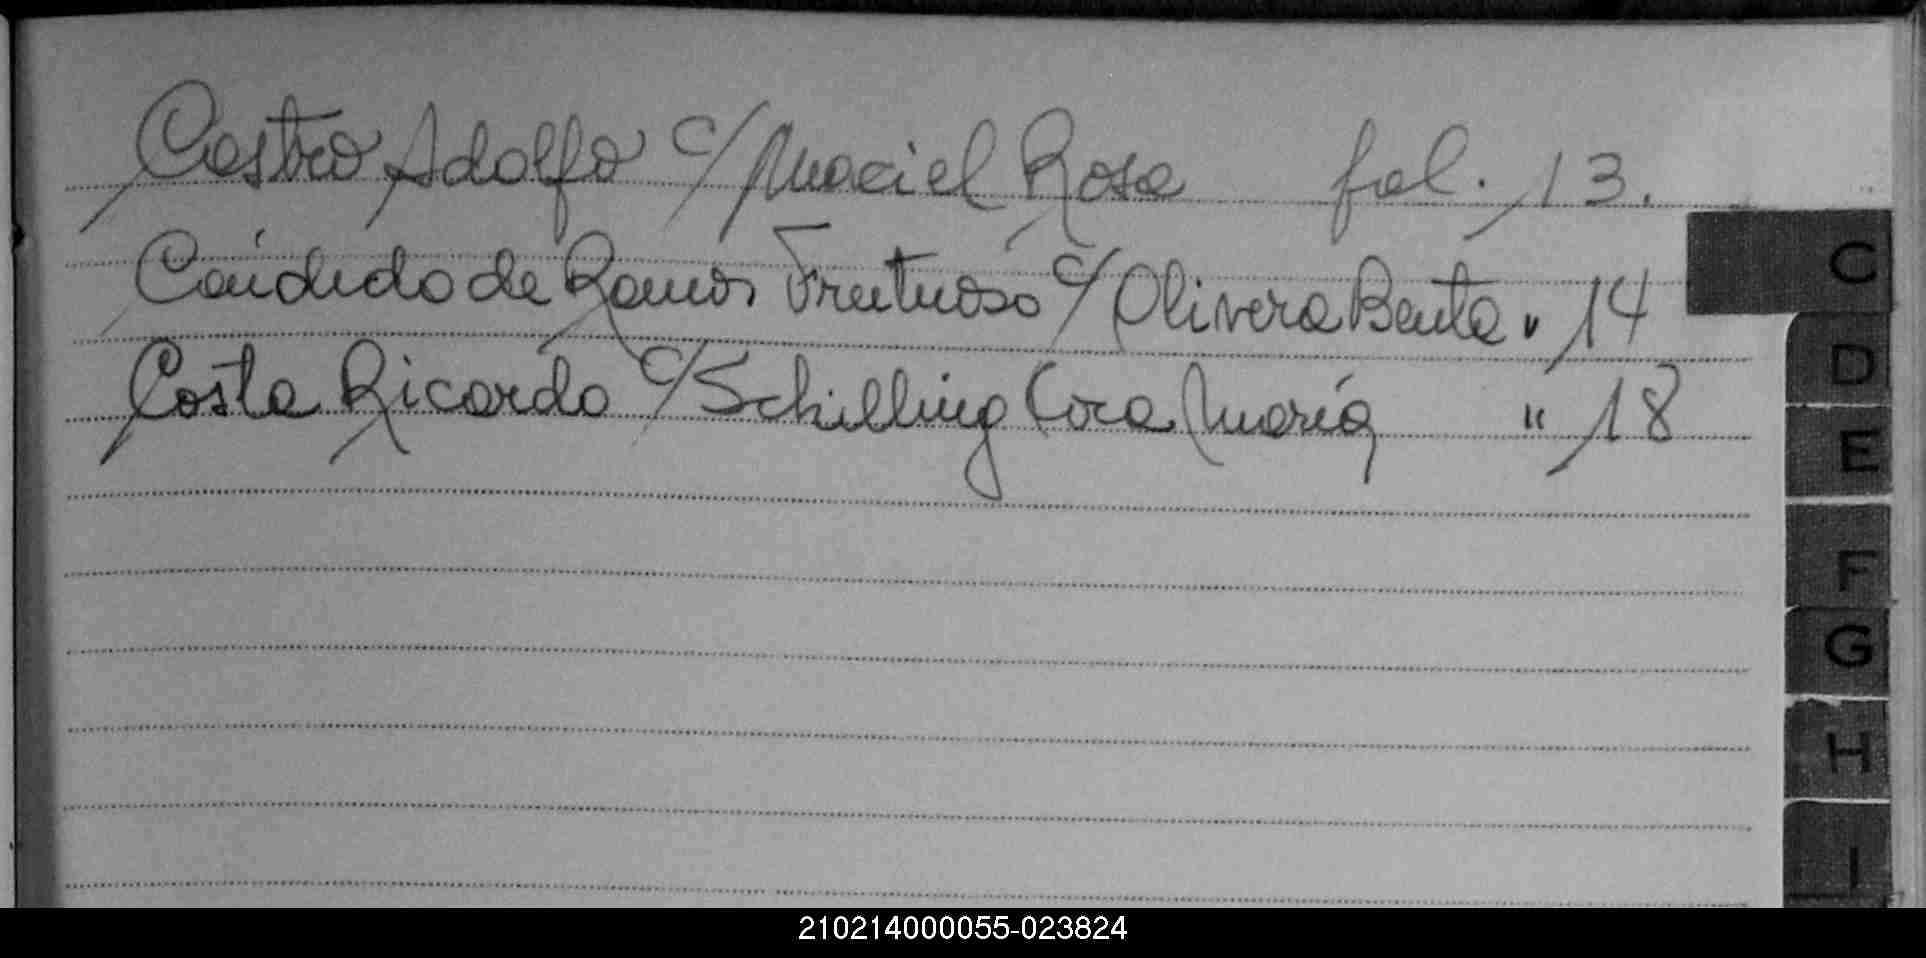 Castro Adolfo c/ Maciel Rosa fol. 13.
Cándido de Ramos Frutuoso c/ Olivera Benta " 14
Costa Ricardo c/ Schilling Cora María " 18
C
D
E
F
G
H
I
210214000055-023824